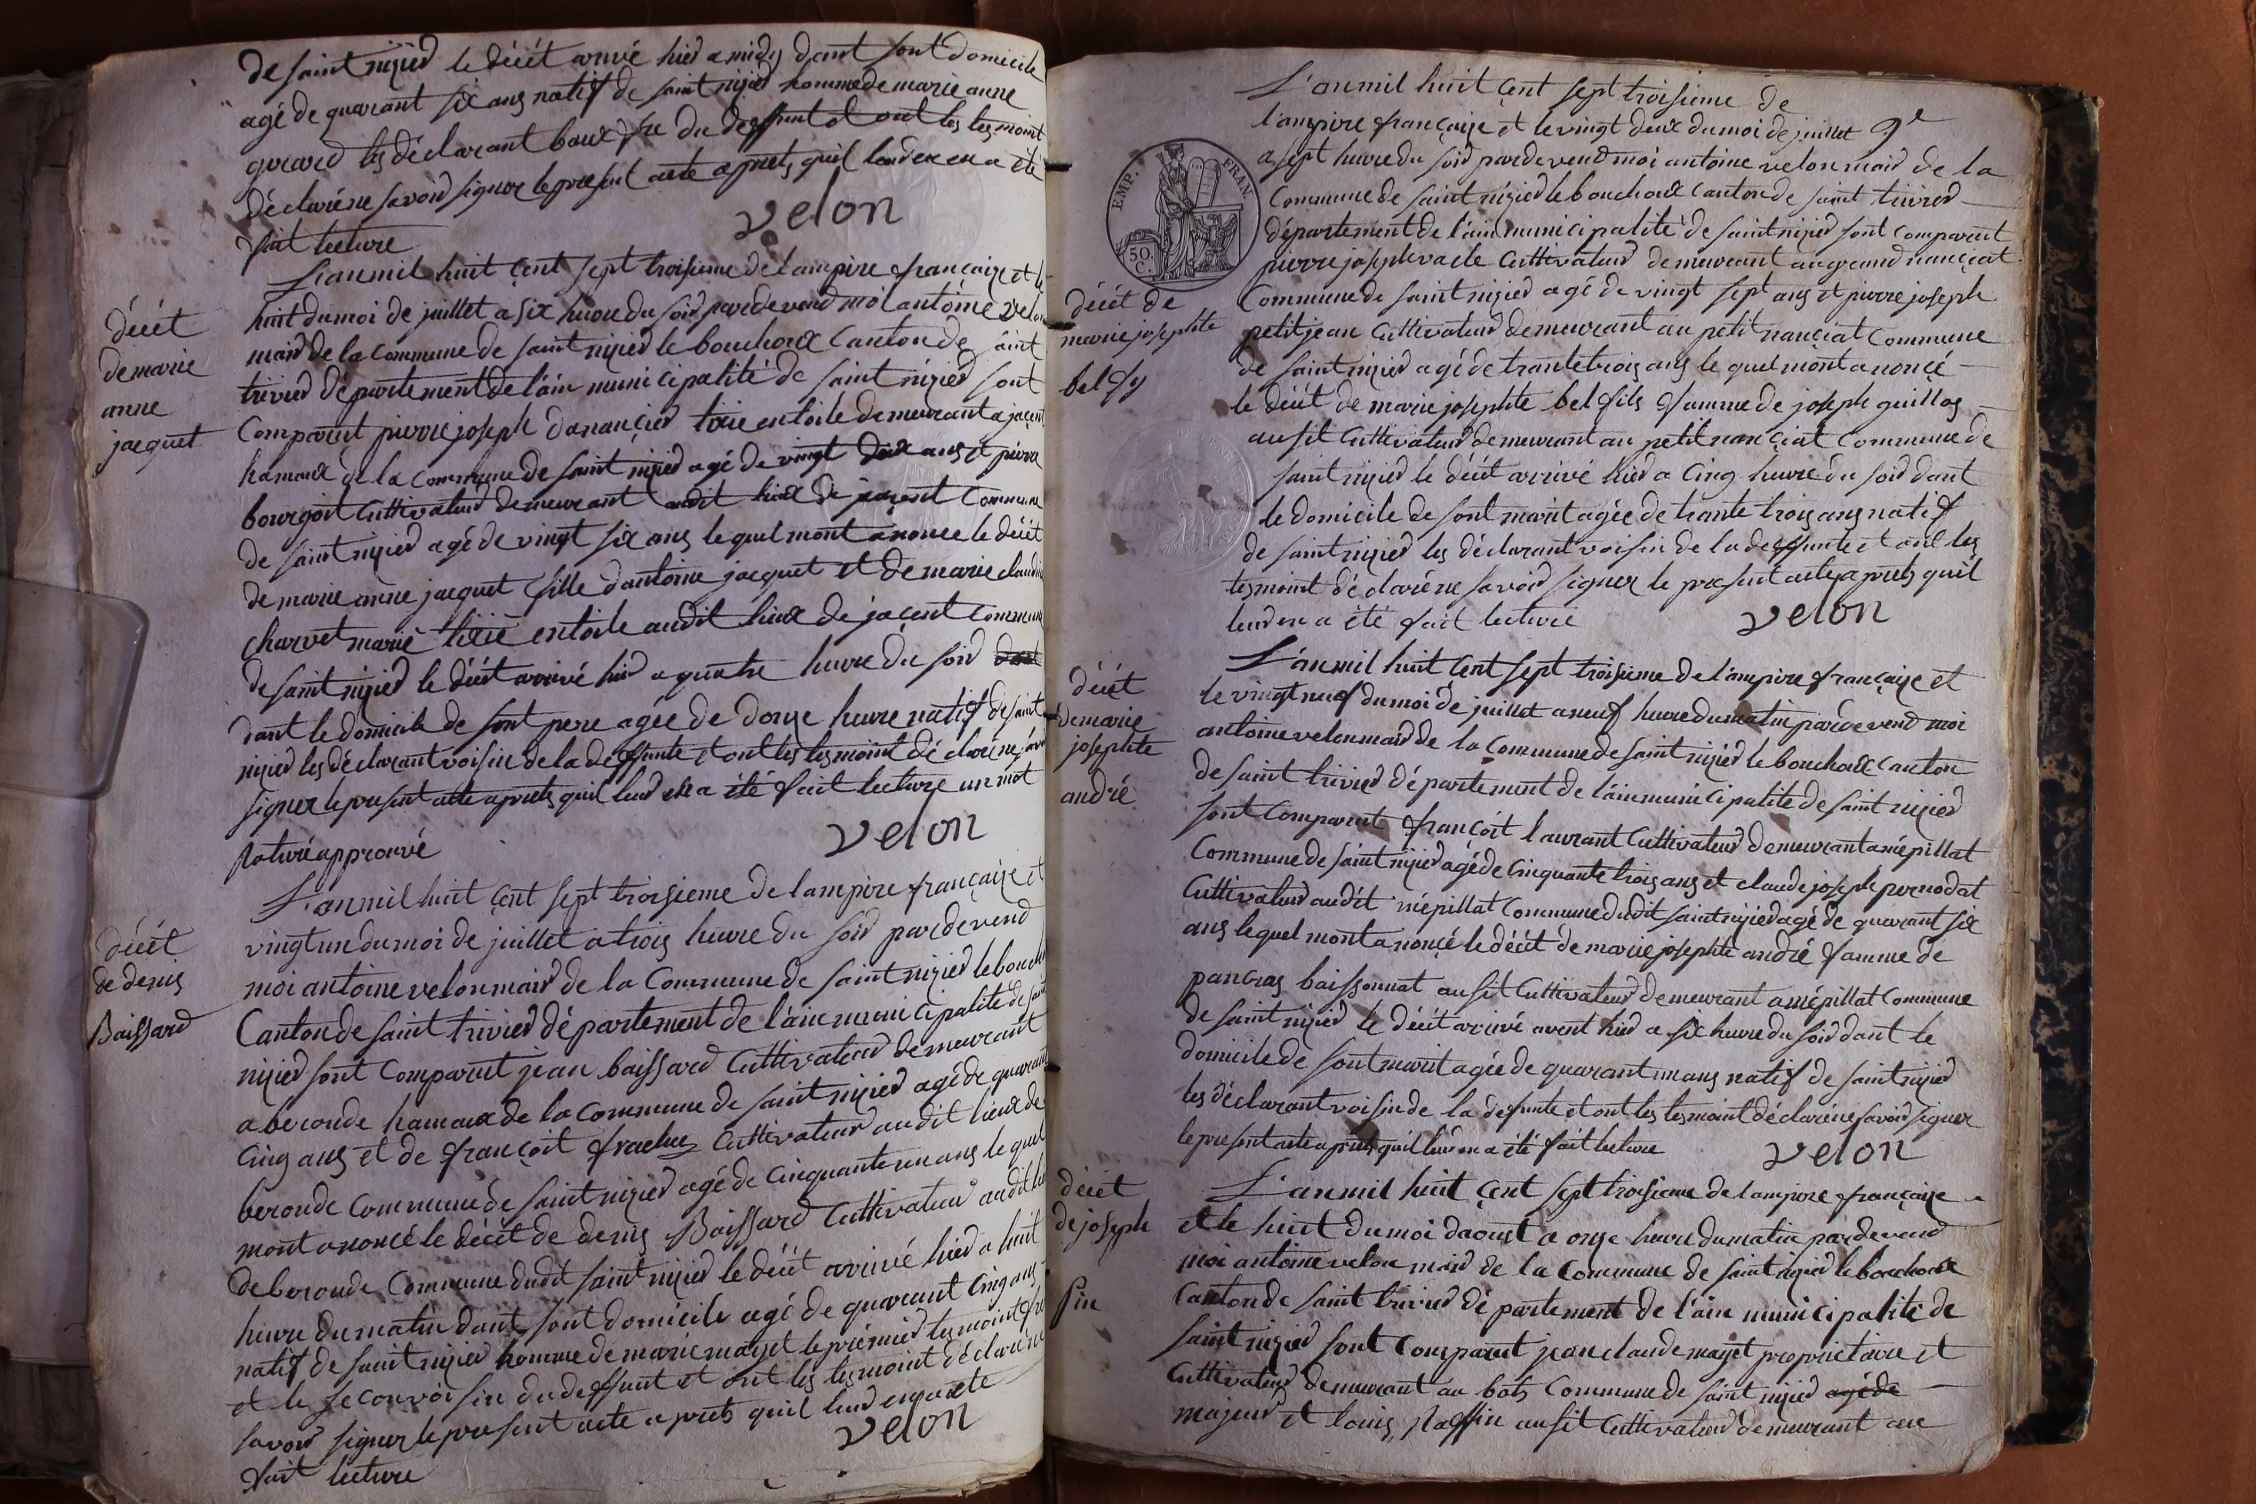 de saint nizied le décét arrivé hied a midy dant sont domicile
agé de quarant six ans natif de saint nizied homme de marie anne
gérard les déclarant baux fre du deffunt et ont les tesmoint
déclaré ne savoid signer le present acte aprets quil leud en en a été
fait lecture
velon
décét
de marie
anne
jacquet
L'an mil huit çent sept troisieme de l'ampire françaize et le
huit du moi de juillet a six heure du soid pardevend moi antoine velon
maid de la commune de saint nizied le bouchoux canton de saint
trivied département de l'ain municipalité de saint nizied sont
comparut pierre joseph danançied tixie entoile demeurant a jaçent
hamaux de la commune de saint nizied agé de vingt deux ans et pierre
bourgoit cultivateud demeurant audit liux de jaçent commune
de saint nizied agé de vingt six ans lequel mont anonce le décét
de marie anne jacquet fille dantoine jacquet et de marie claudine
charvet marié tixie entoile audit liux de jaçent commune
de saint nizied le décét arrivé hied a quatre heure du soid dant
dant le domicile de sont pere agée de donze heure natif de saint
nizied les déclarant voisin de la deffunte et ont les tesmoint déclaré ne savoi
signer le present acte aprets quil leud en a été fait lecture un mot
raturé approuvé
velon
décét
de denis
Baissard
L'an mil huit çent sept troisieme de l'ampire françaize et
vingt un du moi de juillet a trois heure du soid pardevend
moi antoine velon maid de la commune de saint nizied le bouch
canton de saint trivied département de l'ain municipalité de saint
nizied sont comparut jean baissard cultivateud demeurant
a beronde hamaux de la commune de saint nizied agé de quarant
cinq ans et de françoit frachez cultivateud audit lieux de
beronde commune de saint nizied agé de cinquante un ans le quel
mont anoncé le décét de denis Baissard cultivateud audit lie
de beronde commune dudit saint nizied le décét arrivé hied a huit
heure du matin dant sont domicile agé de quarant cinq ans
natif de saint nizied homme de marie mayet le prémied tesmoint fre
et le secon voisin du deffunt et ont les tesmoint déclaré ne
savoid signer le present acte aprets quil leud en a été
fait lecture
velon
L'an mil huit çent sept troisieme de
l'ampire françaize et le vingt deux du moi de juillet 9e
a sept heure du soid pardevend moi antoine velon maid de la
EMP. FRAN
50. C.
commune de saint nizied le bouchoux canton de saint trivied
département de l'ain municipalité de saint nizied sont comparut
pierre joseph vacle cultivateud demeurant au grand nançiat
décét de
marie josephte
belfy
commune de saint nizied agé de vingt sept ans et pierre joseph
petitjean cultivateud demeurant au petit nançiat commune
de saint nizied agé de trante trois ans le quel mont anoncé
le décét de marie josephte belfils famme de joseph guillos
ausit cultivateud demeurant au petit nançiat commune de
saint nizied le décét arrivé hied a cinq heure du soid dant
le domicile de sont marit agée de trante trois ans natif
de saint nizied les déclarant voisin de la deffunte et ont les
tesmoint déclaré ne savoid signer le present acte aprets quil
leud en a été fait lecture
velon
décét
de marie
josephte
andré
L'an mil huit cent sept troisieme de l'ampire françaize et
le vingt neuf du moi de juillet a neuf heure du matin pardevend moi
antoine velon maid de la commune de saint nizied le bouchoux canton
de saint trivied département de l'ain municipalité de saint nizied
sont comparut françoit laurant cultivateud demeurant a mépillat
commune de saint nizied agé de cinquante trois ans et claude joseph pernodat
cultivateud audit mépillat commune dudit saint nizied agé de quarant six
ans lequel mont anonçé le décét de marie josephte andré famme de
pancras baissonnat ausit cultivateud demeurant a mépillat commune
de saint nizied le décét arrivé avent hied a six heure du soid dant le
domicile de sont marit agée de quarant un ans natif de saint nizied
les déclarant voisin de la defunte et ont les tesmoint déclaré ne savoid signer
le present acte aprets quil leud en a été fait lecture
velon
décét
de joseph
pin
L'an mil huit çent sept troisieme de l'ampire françaize
et le huit du moi daoust a onze heure du matin pardevend
moi antoine velon maid de la commune de saint nizied le bouchoux
canton de saint trivied département de l'ain municipalité de
saint nizied sont comparut jean claude mayet propriétaire et
cultivateud demeurant au bots commune de saint nizied agé de
majeud et louis raffin ausit cultivateud demeurant au